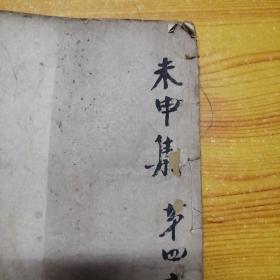 未申集 第四